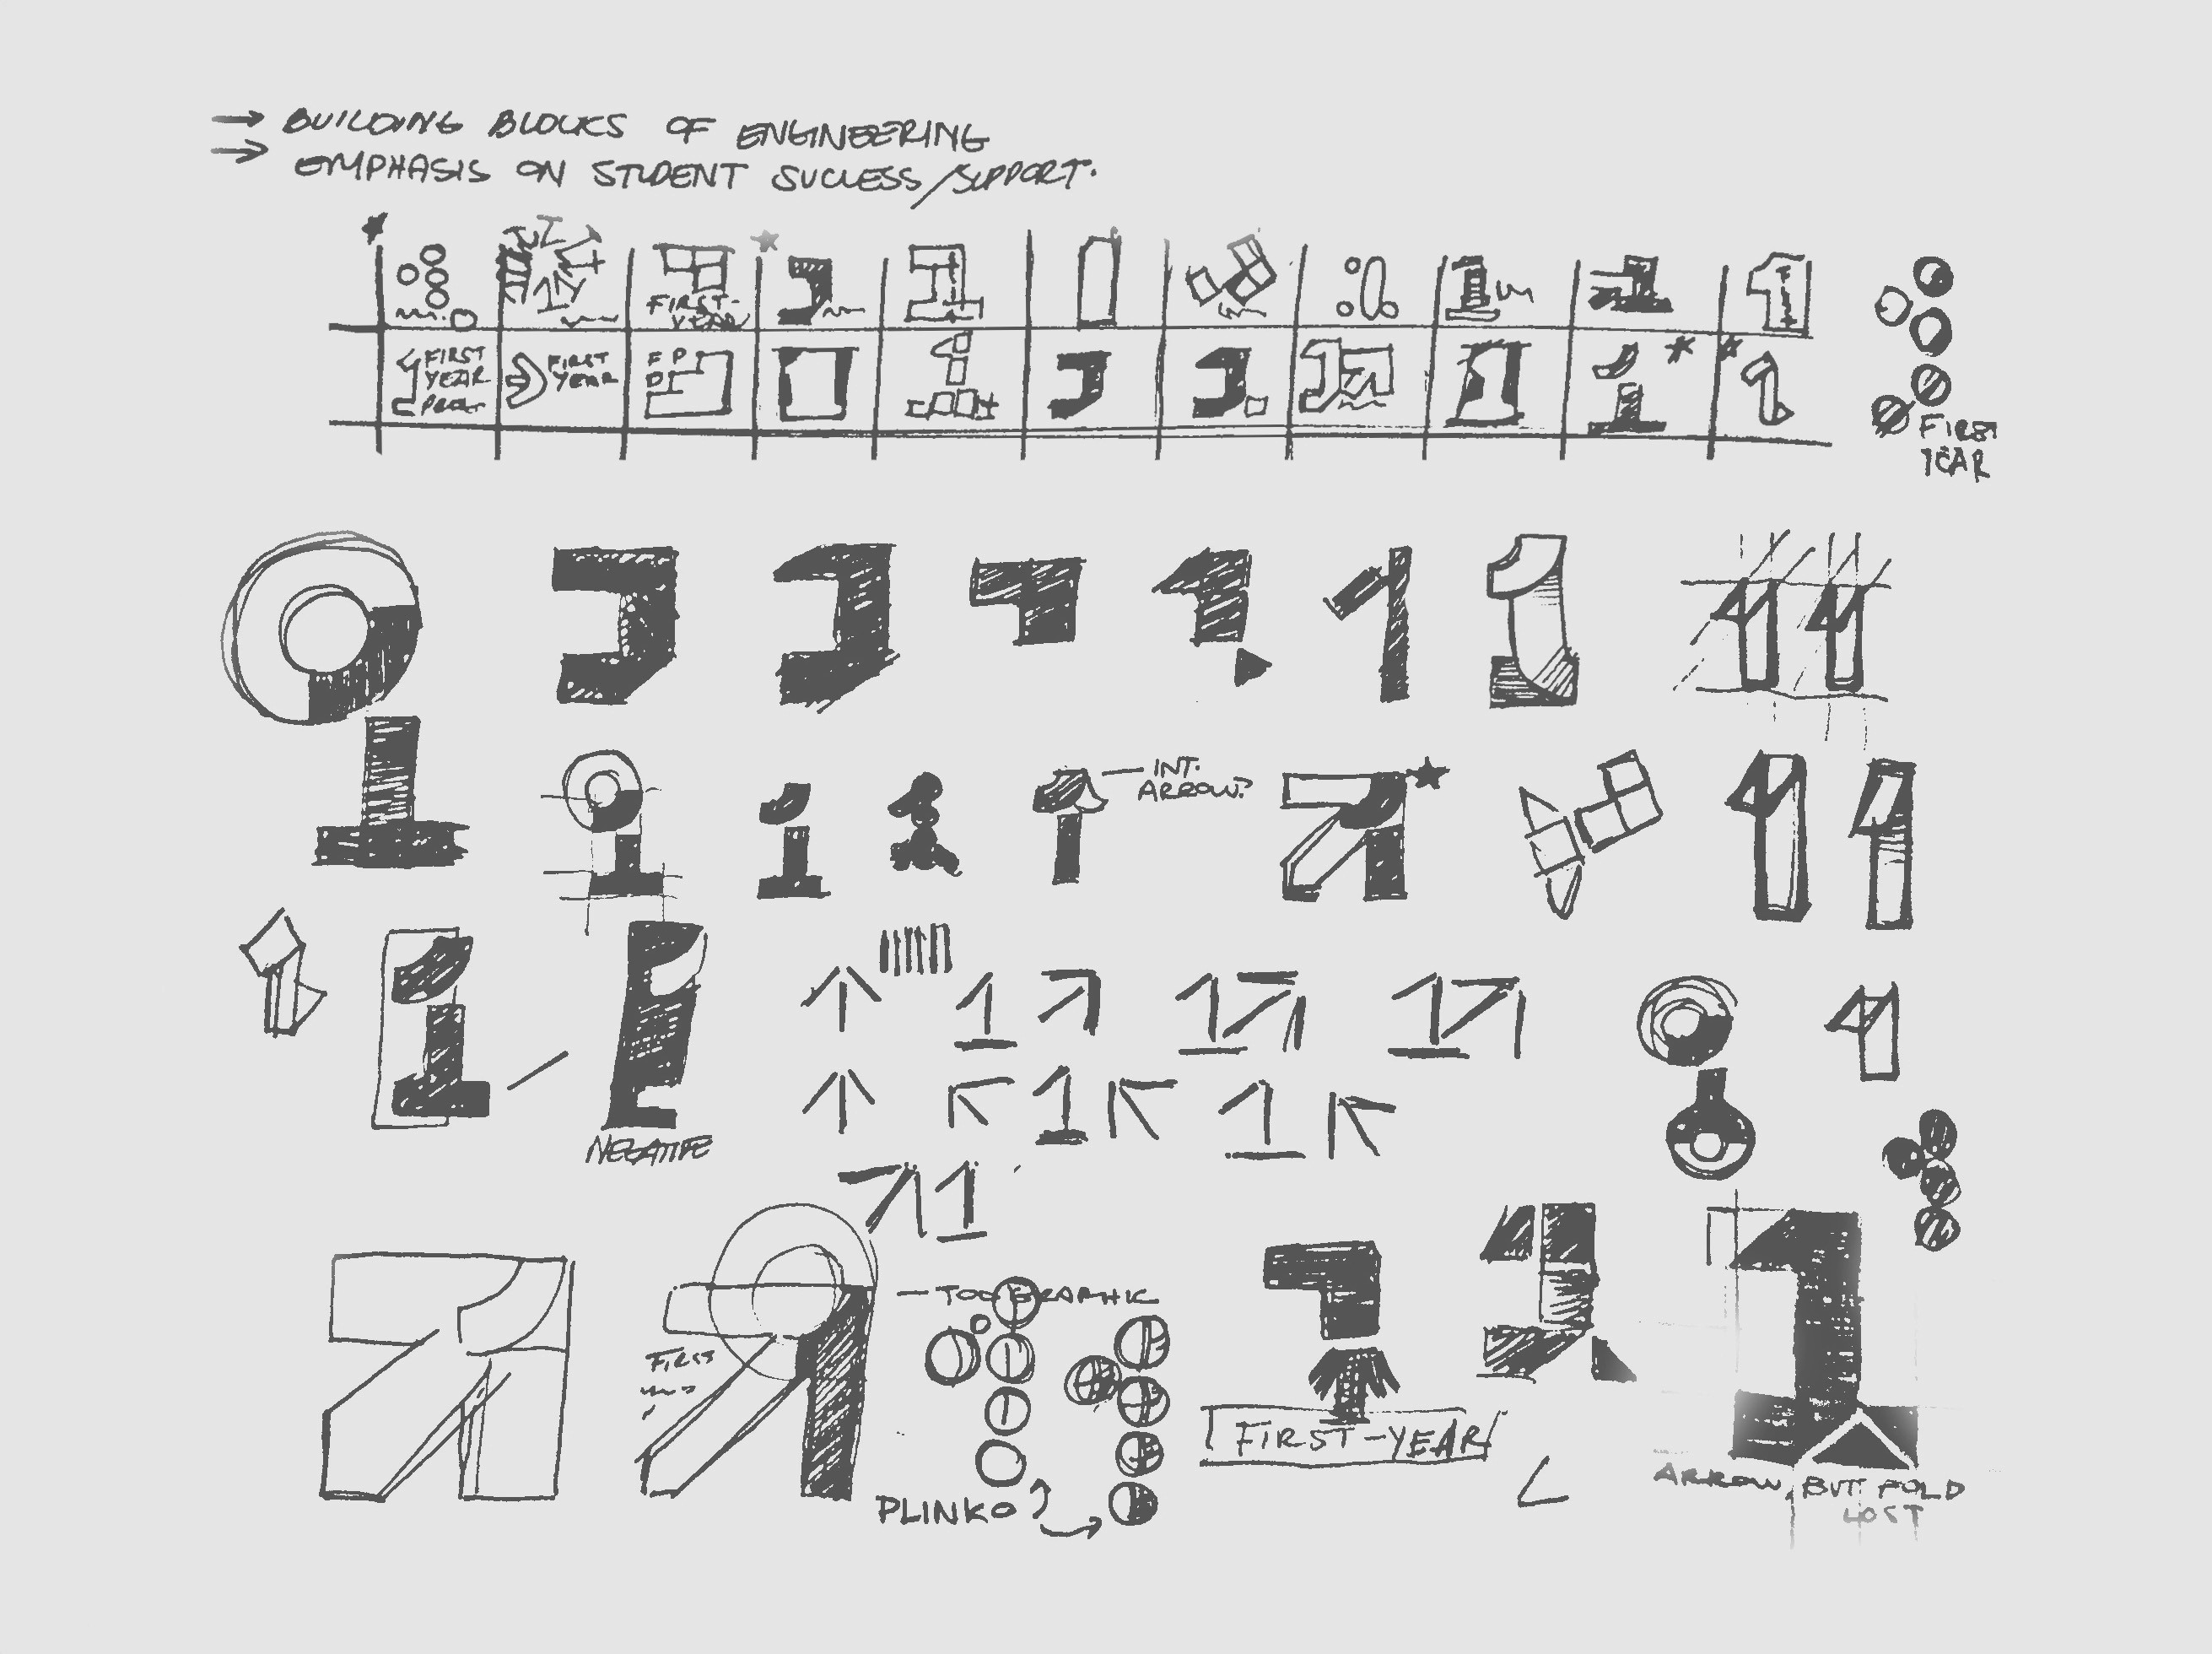 → BUILDING BLOCKS OF ENGINEERING
→ EMPHASIS ON STUDENT SUCCESS/SUPPORT.
FIRST-
YEAR
FIRST
YEAR
FIRST
YEAR
F P
FIRST
YEAR
— INT.
ARROW?
NEGATIVE
— TOO GRAPHIC
FIRST
PLINKO
FIRST-YEAR
ARROW, BUT FOLD
LOST